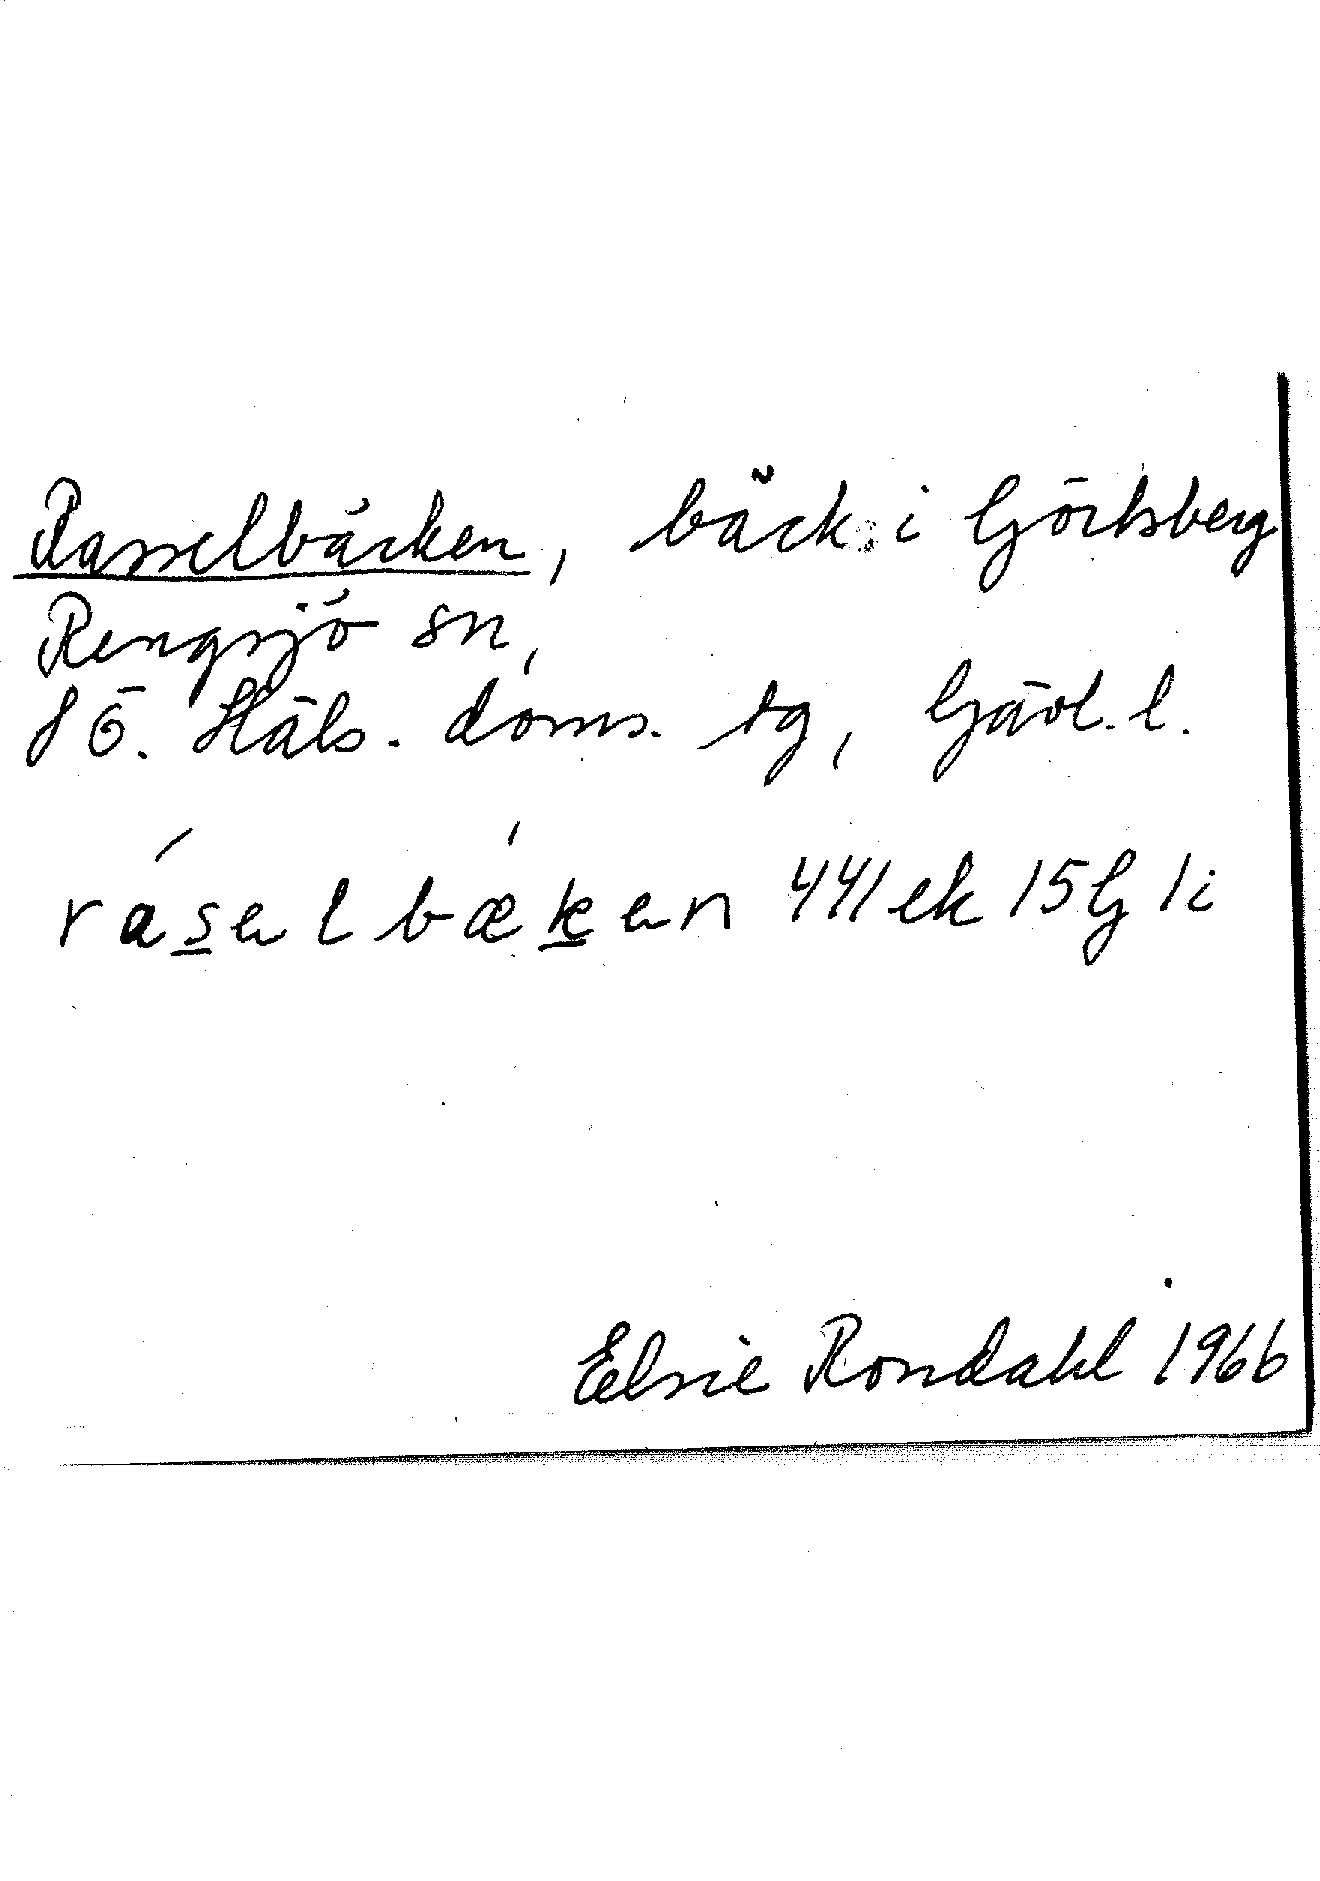 Rasselbäcken, bäck i Görtsberg
Rengsjö sn,
SÖ. Häls. doms. tg, Gävl. l.
rasel bæken 441 ek 15 G 1 i
Elsie Rondahl 1966